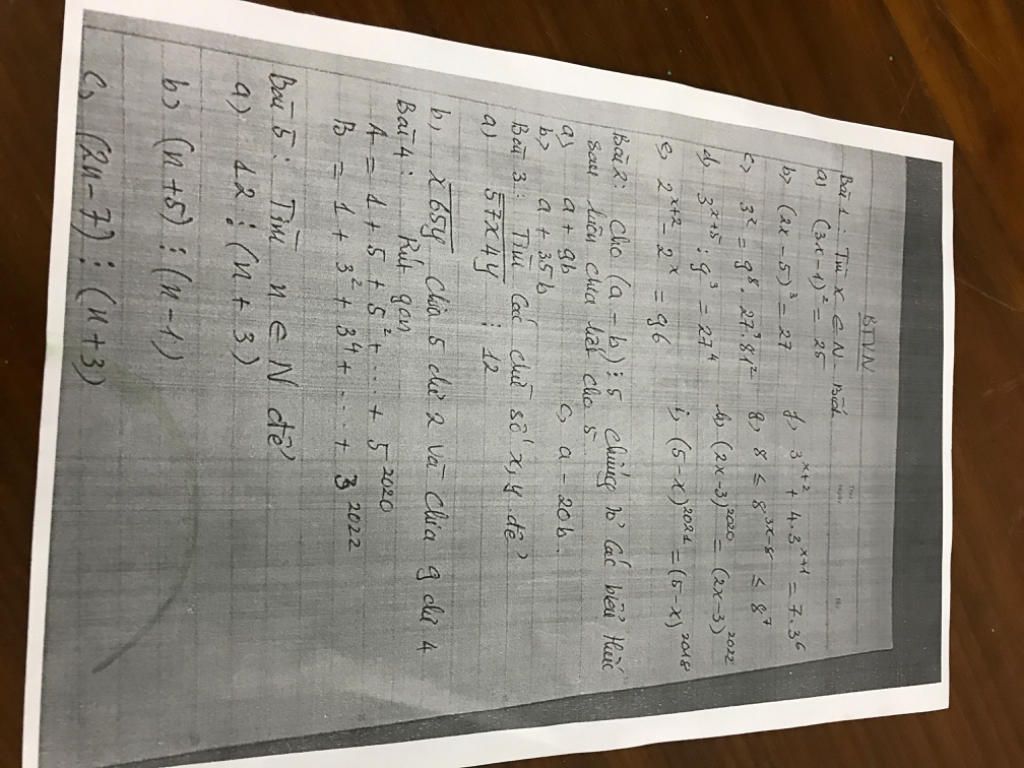 BTVN
Bài 1 : Tìm x ∈ N biết
a) (3x - 1)² = 25
b) (2x - 5)³ = 27
c) 3ˣ = 9⁸ . 27³ 81²
d) 3ˣ⁺⁵ : 9³ = 27⁴
e) 2ˣ⁺² - 2ˣ = 96
f) 3ˣ⁺² + 4.3ˣ⁺¹ = 7.3⁶
g) 8 ≤ 8³ˣ⁻⁸ ≤ 8⁷
h) (2x - 3)²⁰²⁰ = (2x - 3)²⁰²²
i) (5 - x)²⁰²¹ = (5 - x)²⁰¹⁸
Bài 2 : Cho (a - b) ⋮ 5 chứng tỏ các biểu thức
sau luôn chia hết cho 5
a) a + 9b c, a - 20b.
b) a + 35b
Bài 3 : Tìm các chữ số x, y để
a) 57x4y ⋮ 12
b, x65y chia 5 dư 2 và chia 9 dư 4
Bài 4 : Rút gọn
A = 1 + 5 + 5² + ... + 5²⁰²⁰
B = 1 + 3² + 3⁴ + ... + 3²⁰²²
Bài 5 : Tìm n ∈ N để
a) 12 ⋮ (n + 3)
b) (n + 5) ⋮ (n - 1)
c, (2n - 7) ⋮ (n + 3)